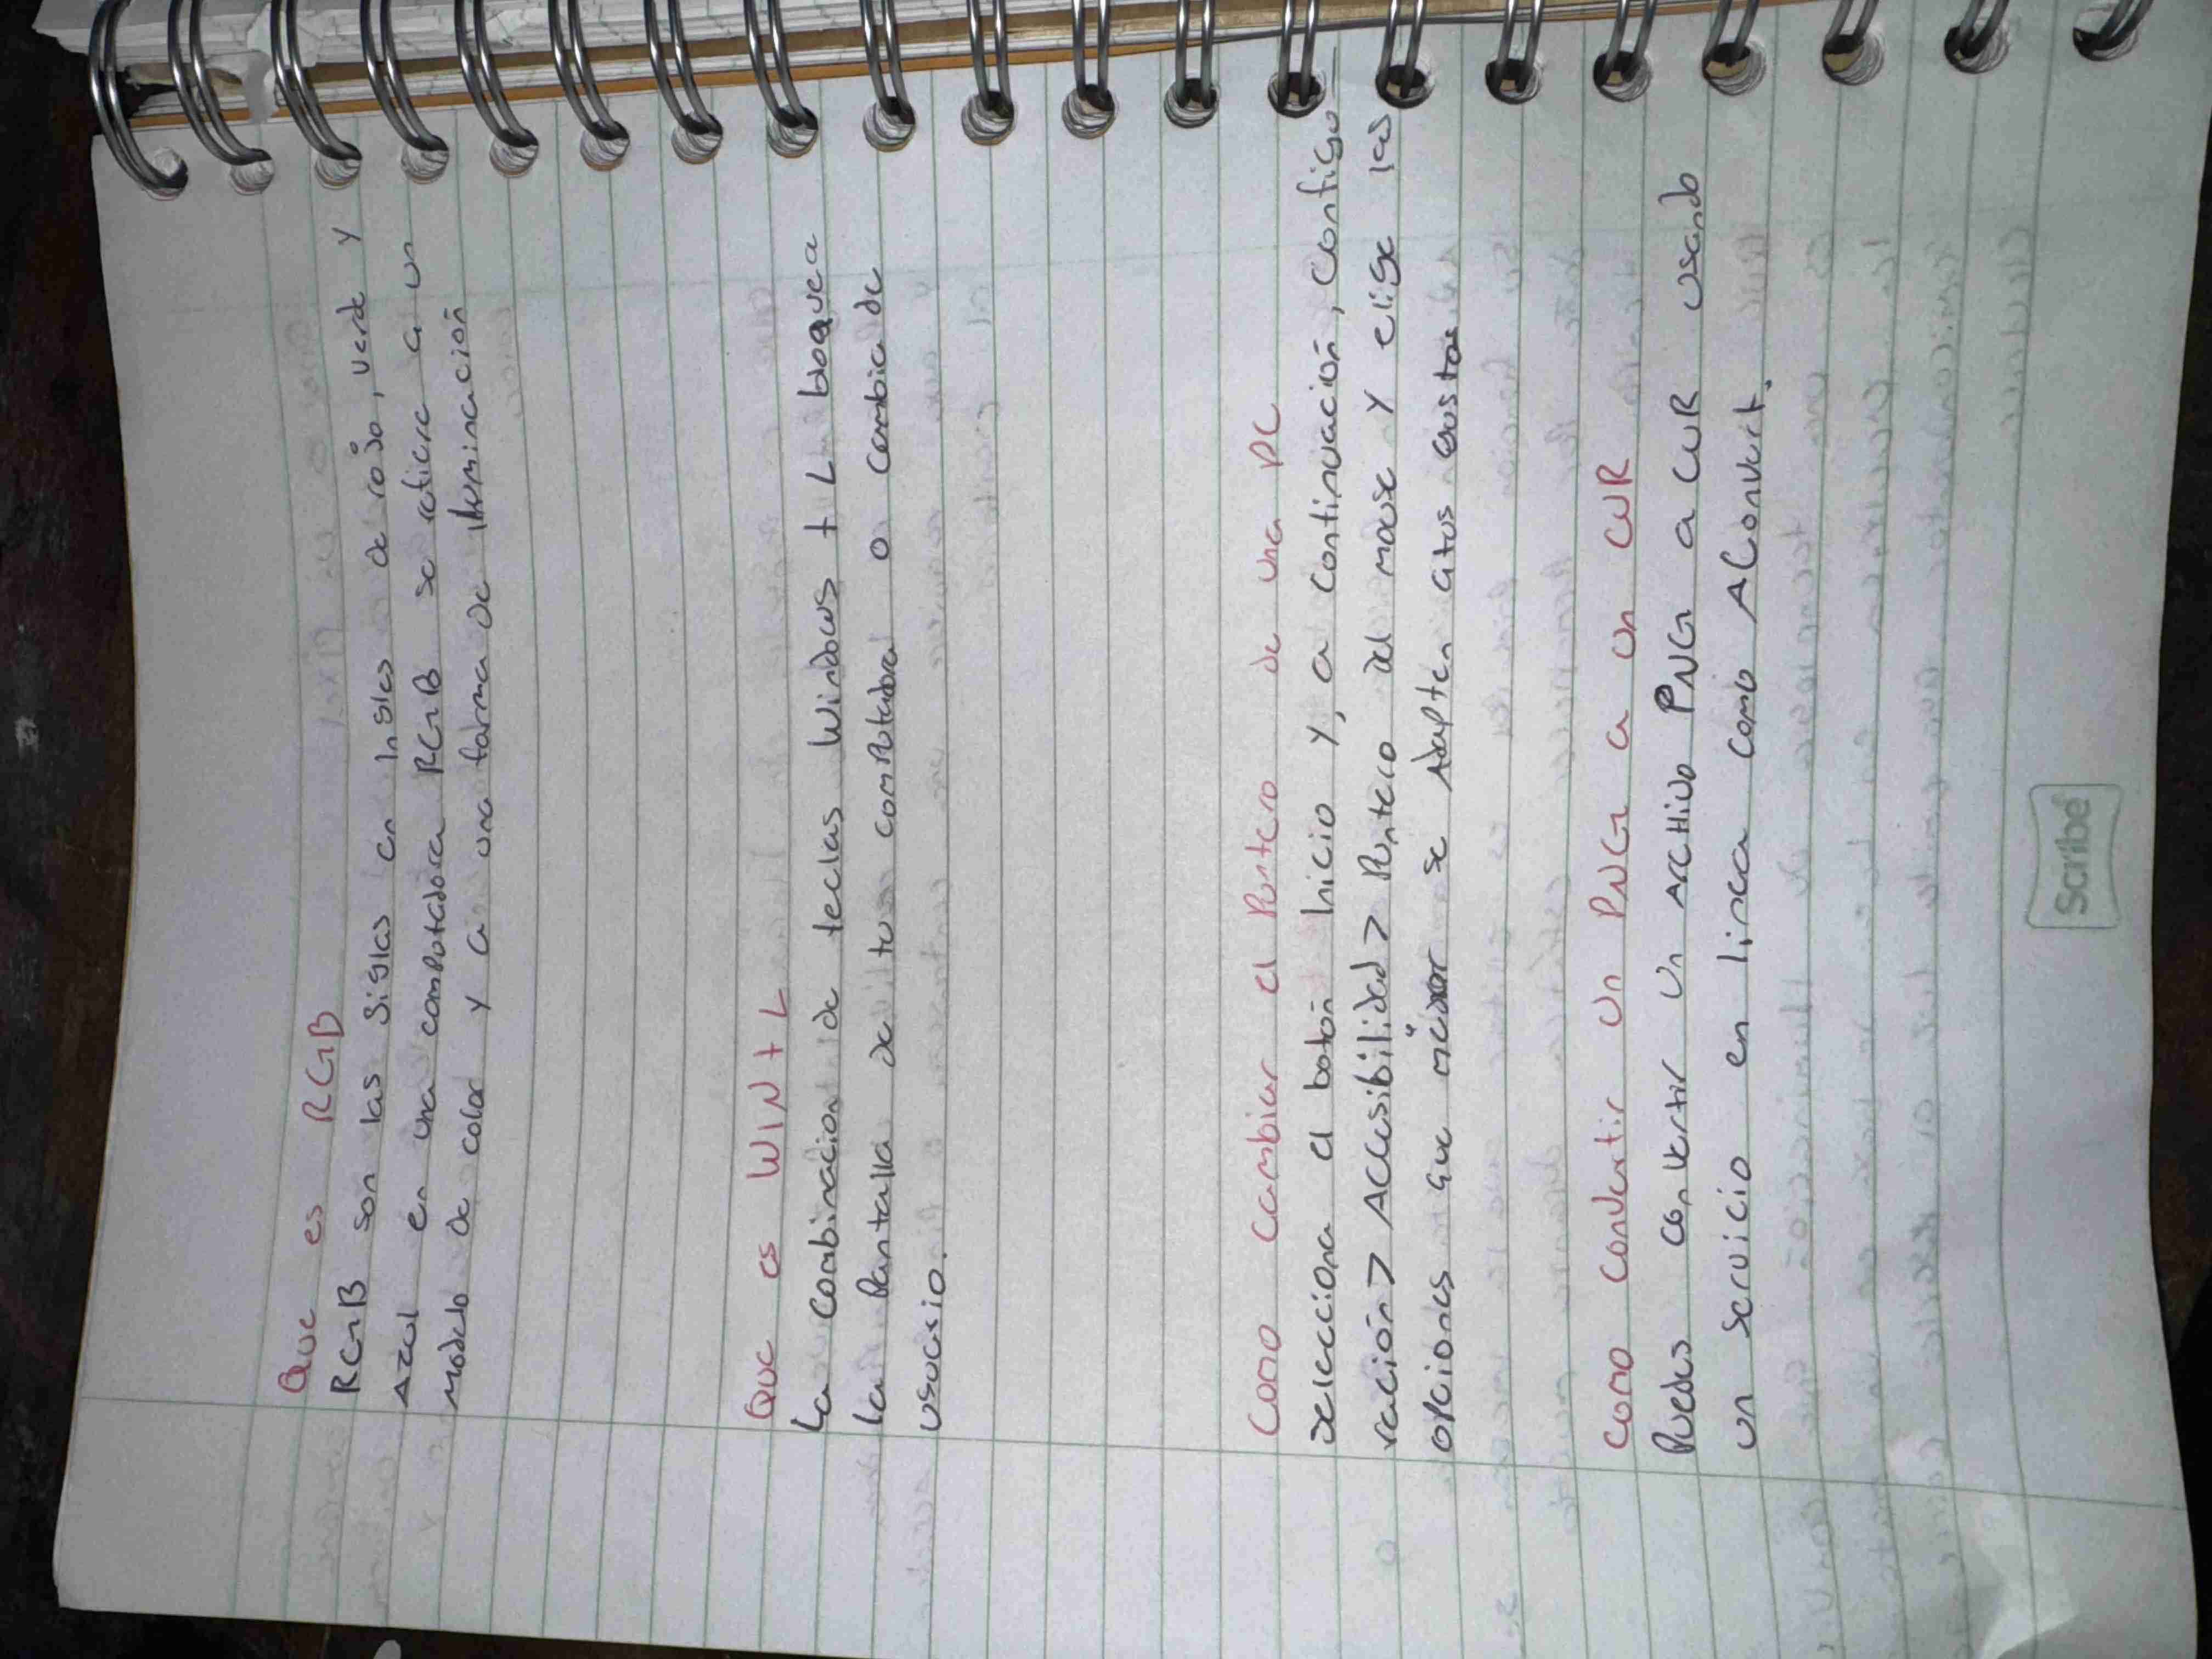 Que es RGB
RGB son las siglas en ingles de rojo, verde y
Azul en una computadora RGB se refiere a un
modelo de color y a una forma de iluminación
Que es WIN + L
La combinacion de teclas Windows + L bloquea
la Pantalla de tu computadora o cambia de
usuario.
Como Cambiar el Puntero de una PC
selecciona el botón Inicio y, a continuación, Configu
ración > Accesibilidad > Puntero del mouse y elige las
opciones que mejor se Adapten a tus gustos
Como Convertir un PNG a un CUR
Puedes convertir un Archivo PNG a CUR usando
un servicio en linea como AConvert.
Scribe